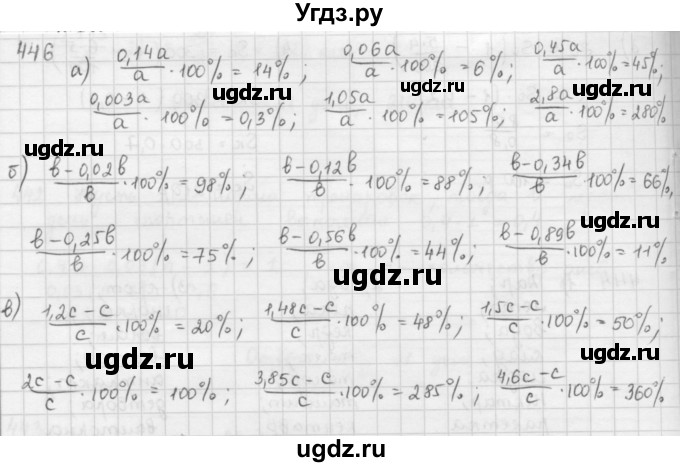 Угдз.ру
446
а) 0,14a/a · 100% = 14%; 0,06a/a · 100% = 6%; 0,45a/a · 100% = 45%;
ugdz.ru
ugdz.ru
0,003a/a · 100% = 0,3%; 1,05a/a · 100% = 105%; 2,8a/a · 100% = 280%
ugdz.ru
б) в-0,02в/в · 100% = 98%; в-0,12в/в · 100% = 88%; в-0,34в/в · 100% = 66%,
ugdz.ru
ugdz.ru
в-0,25в/в · 100% = 75%; в-0,56в/в · 100% = 44%; в-0,89в/в · 100% = 11%
ugdz.ru
в) 1,2c-c/c · 100% = 20%; 1,48c-c/c · 100% = 48%; 1,5c-c/c · 100% = 50%;
ugdz.ru
ugdz.ru
2c-c/c · 100% = 100%; 3,85c-c/c · 100% = 285%; 4,6c-c/c · 100% = 360%
ugdz.ru
ugdz.ru